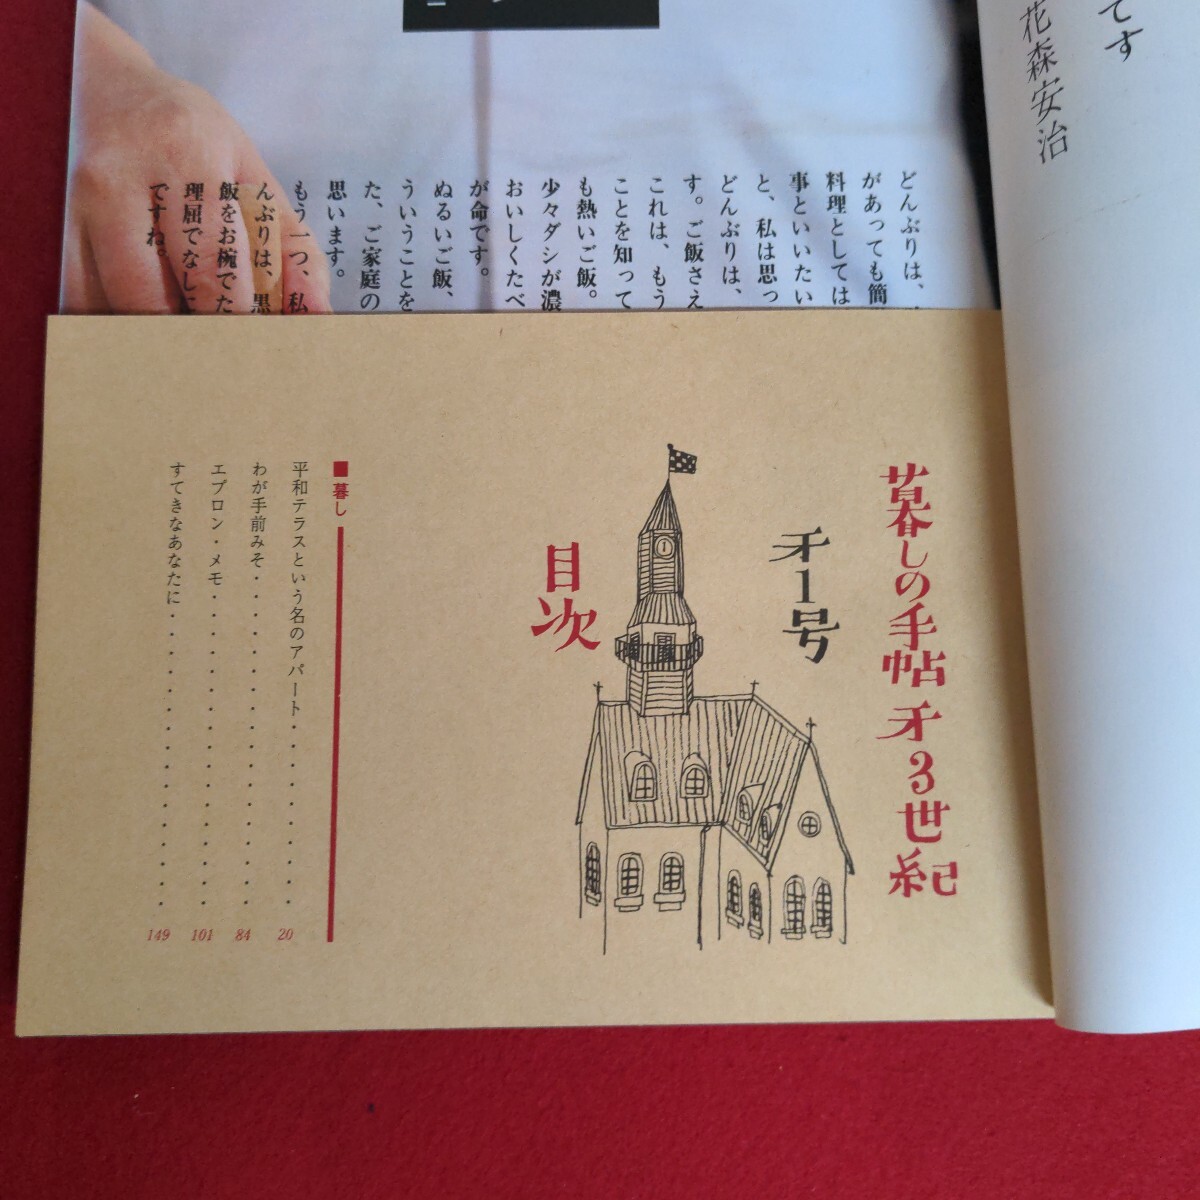 てす
花森安治
どんぶりは、
があっても簡
料理としては
事といいたい
と、私は思っ
どんぶりは、
す。ご飯さえ
これは、もう
ことを知って
も熱いご飯。
少々ダシが濃
おいしくたべ
が命です。
ぬるいご飯、
ういうことを
た、ご家庭の
思います。
もう一つ、私
んぶりは、黒
飯をお椀でた
理屈でなしに
ですね。
暮しの手帖 㐧3世紀
㐧1号
目次
■暮し
平和テラスという名のアパート・・・・・・・・・・20
わが手前みそ・・・・・・・・・・・・・・・・・84
エプロン・メモ・・・・・・・・・・・・・・・・101
すてきなあなたに・・・・・・・・・・・・・・・149